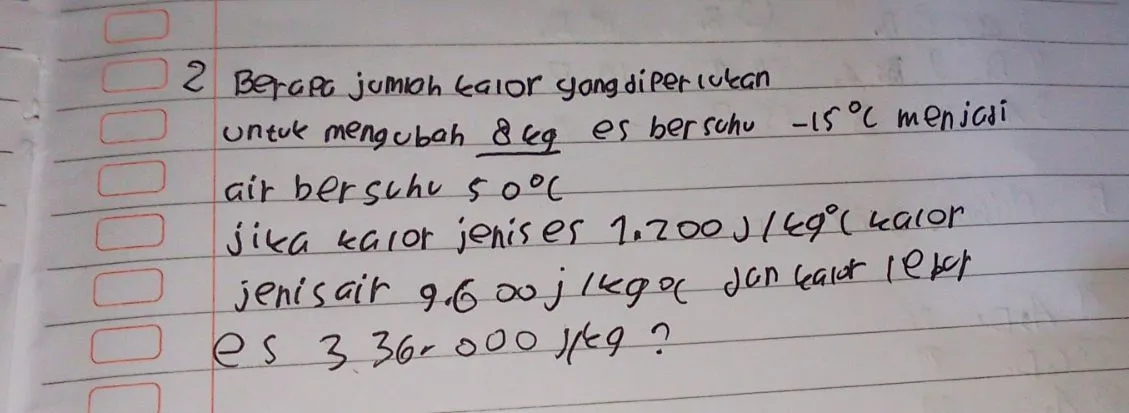 2 Berapa jumlah kalor yang diperlukan
untuk mengubah 8 kg es bersuhu -15°C menjadi
air bersuhu 50°C
jika kalor jenis es 1.200 J/kg°C kalor
jenis air 9.600 j/kg°C dan kalor lebur
es 3 36.000 J/kg?